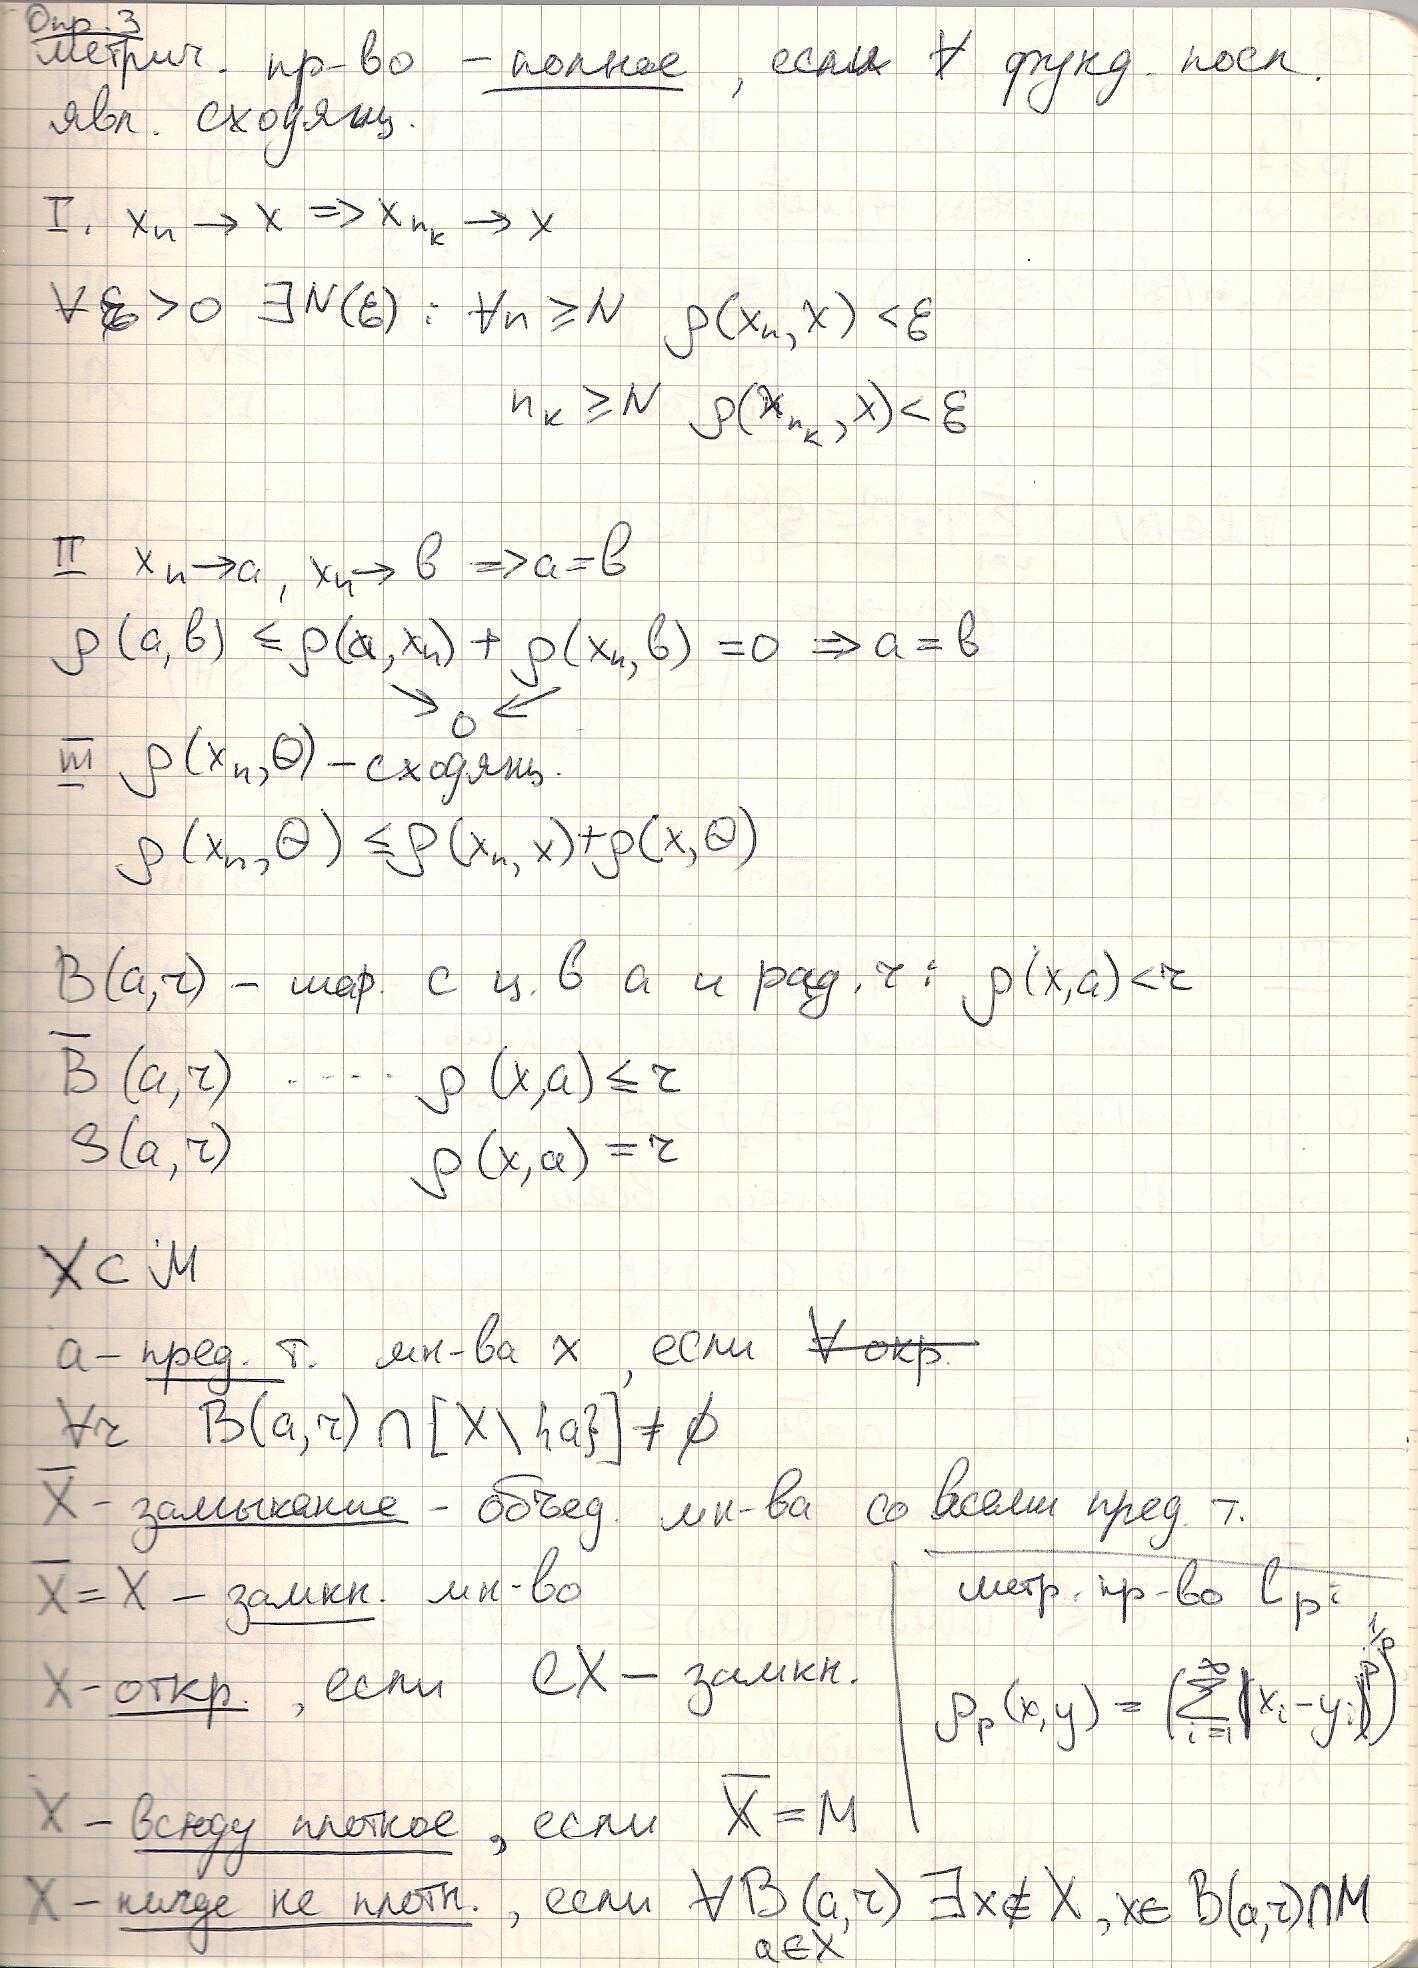 Опр. 3
метрич. пр-во – полное, если ∀ фунд. посл.
явл. сходящ.
I. xₙ → x => xₙₖ → x
∀ε > 0 ∃N(ε) : ∀n ≥ N ρ(xₙ, x) < ε
nₖ ≥ N ρ(xₙₖ, x) < ε
II xₙ → a, xₙ → b => a = b
ρ(a, b) ≤ ρ(a, xₙ) + ρ(xₙ, b) = 0 => a = b
↘ 0 ↙
III ρ(xₙ, Θ) – сходящ.
ρ(xₙ, Θ) ≤ ρ(xₙ, x) + ρ(x, Θ)
B(a, r) – шар. с ц. в a и рад. r : ρ(x, a) < r
B̅(a, r) ..... ρ(x, a) ≤ r
S(a, r) ρ(x, a) = r
X ⊂ M
a – пред. т. мн-ва x, если ∀ окр.
∀r B(a, r) ∩ [X \ {a}] ≠ ∅
X̅ – замыкание – объед. мн-ва со всеми пред. т.
X̅ = X – замкн. мн-во
X – откр., если CX – замкн.
метр. пр-во lₚ:
ρₚ(x, y) = (∑_{i=1}^{∞} |xᵢ – yᵢ|^p)^{1/p}
X – всюду плотное, если X̅ = M
X – нигде не плотн., если ∀B(a, r) ∃x ∉ X, x ∈ B(a, r) ∩ M
a ∈ X